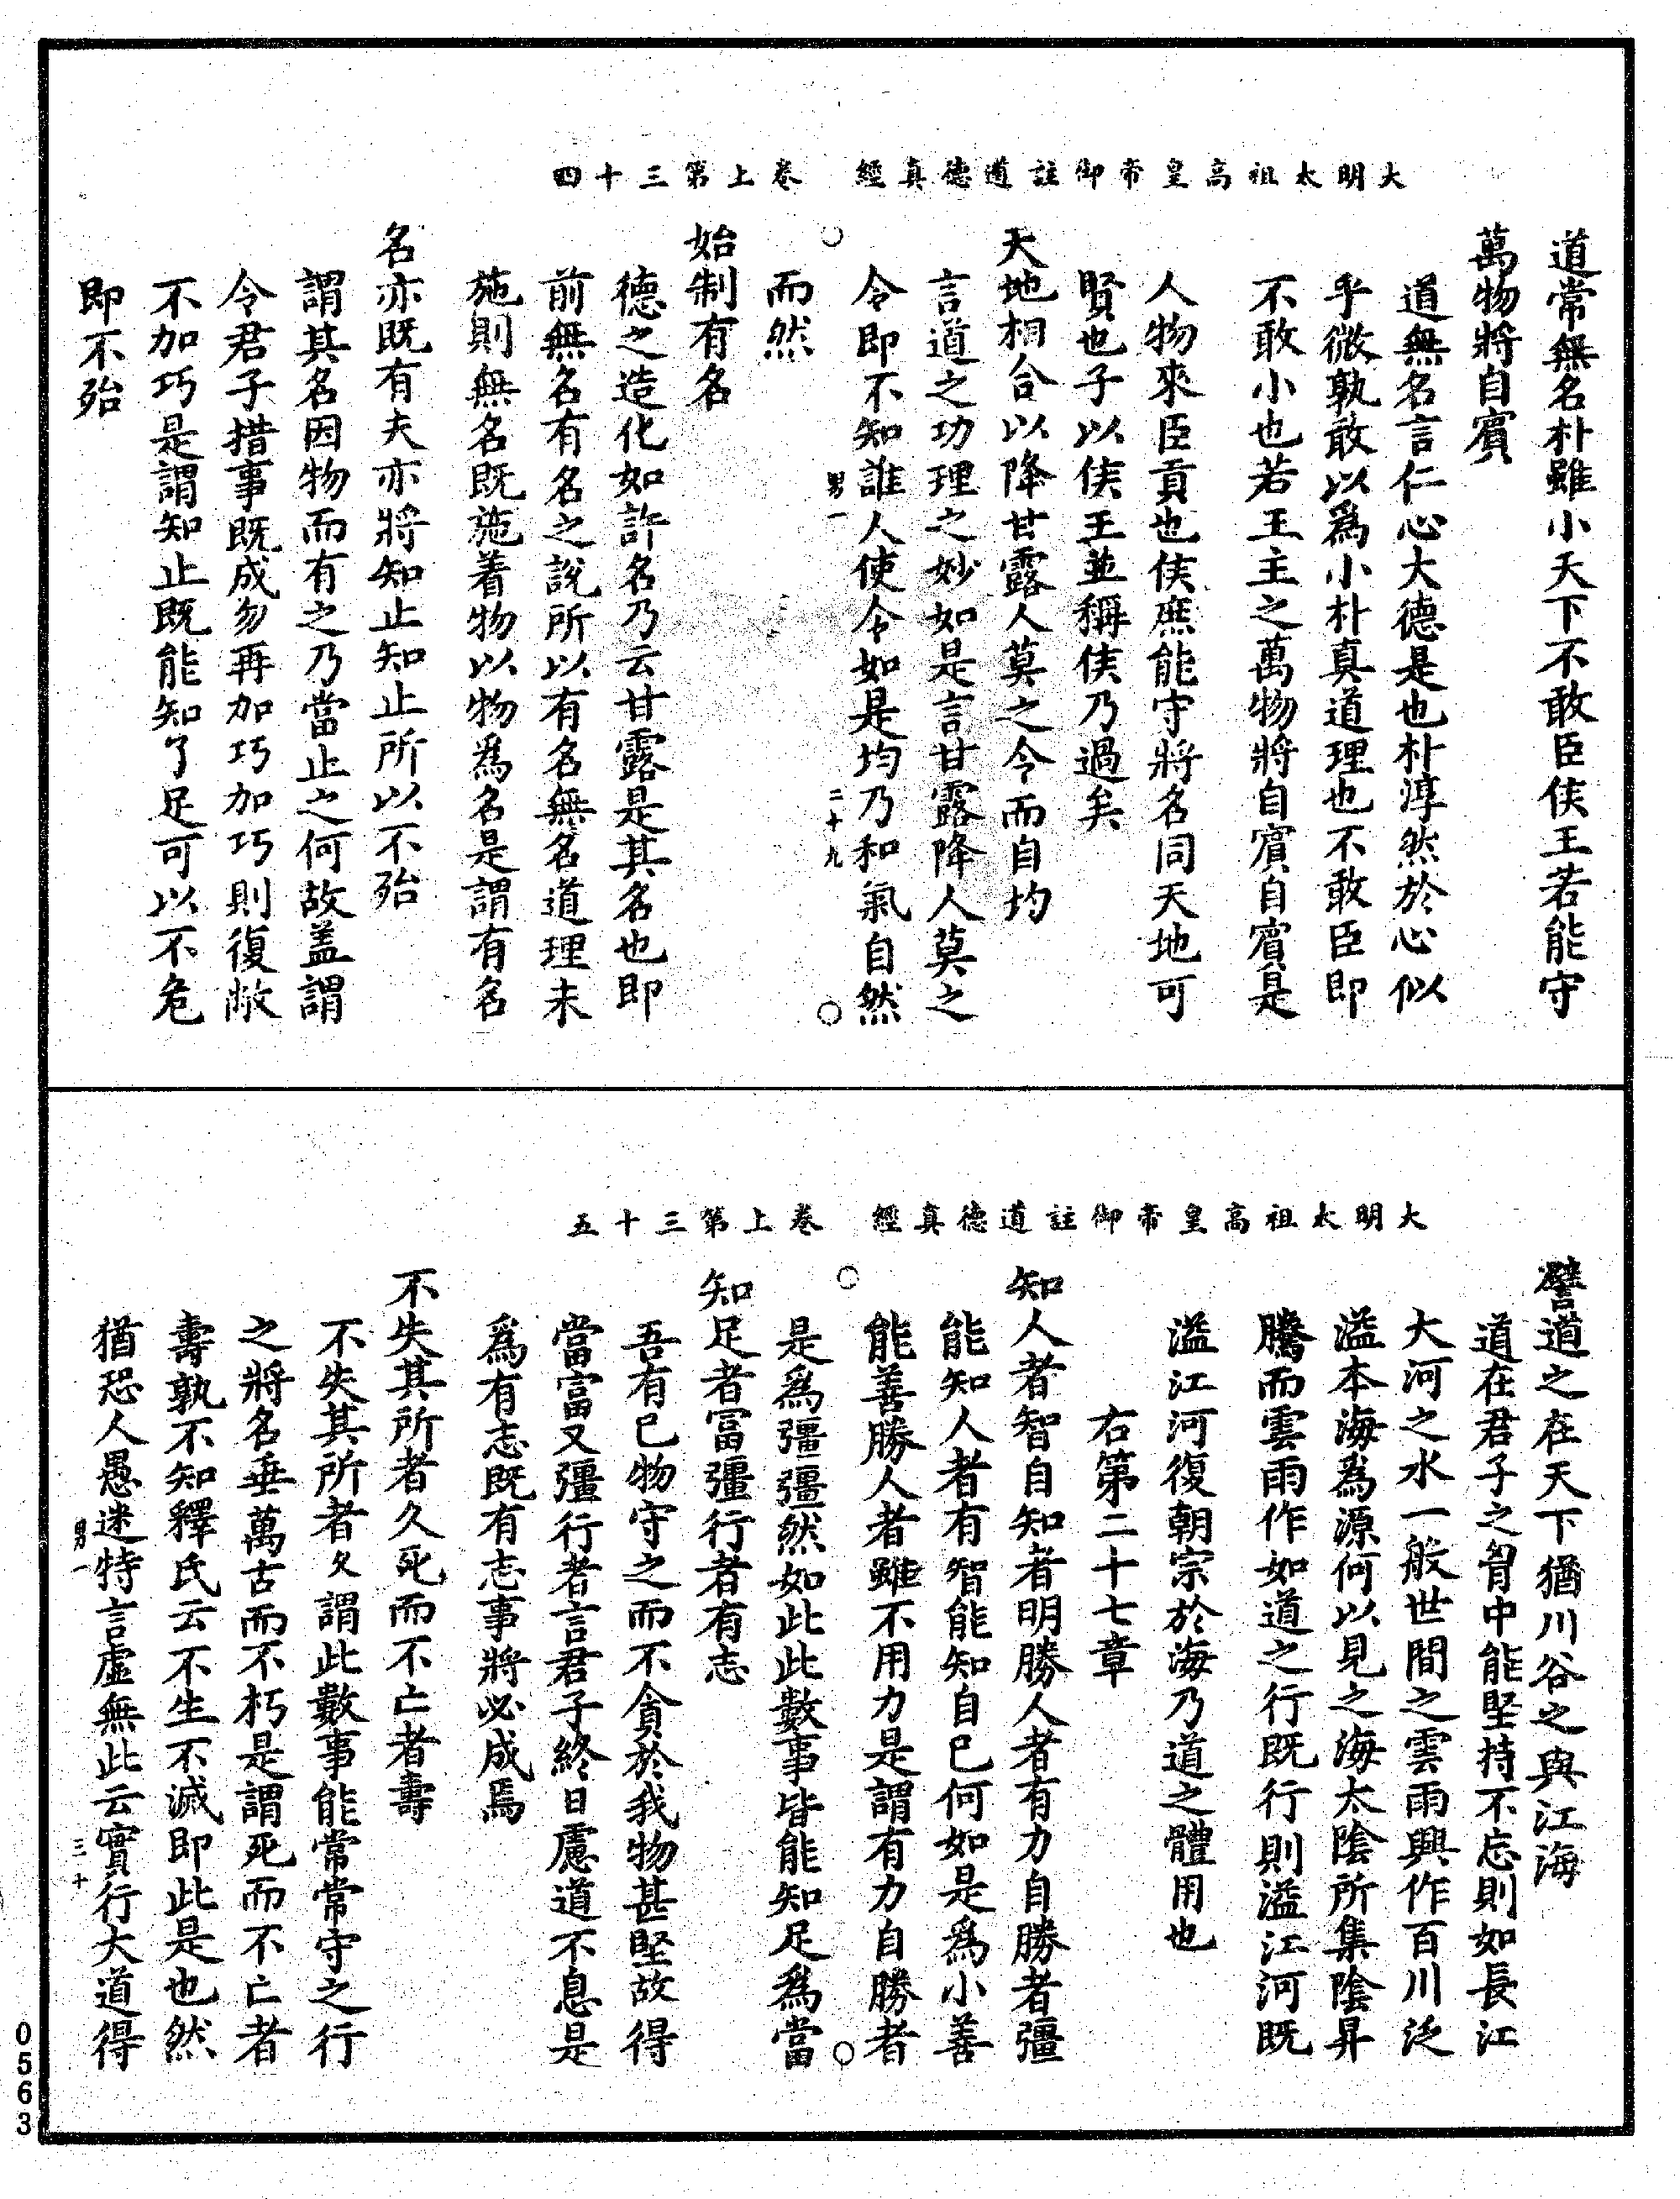 大明太祖高皇帝御註道德真經　卷上第三十四
道常無名朴雖小天下不敢臣侯王若能守
萬物將自賓
道無名言仁心大德是也朴淳然於心似
乎微孰敢以爲小朴真道理也不敢臣即
不敢小也若王主之萬物將自賓自賓是
人物來臣貢也侯庶能守將名同天地可
賢也子以侯王並稱侯乃過矣
天地相合以降甘露人莫之令而自均
言道之功理之妙如是言甘露降人莫之
令即不知誰人使令如是均乃和氣自然
男一　二十九
而然
始制有名
德之造化如許名乃云甘露是其名也即
前無名有名之說所以有名無名道理未
施則無名既施着物以物為名是謂有名
名亦既有夫亦將知止知止所以不殆
謂其名因物而有之乃當止之何故盖謂
令君子措事既成勿再加巧加巧則復敝
不加巧是謂知止既能知了足可以不危
即不殆
大明太祖高皇帝御註道德真經　卷上第三十五
譬道之在天下猶川谷之與江海
道在君子之胷中能堅持不忘則如長江
大河之水一般世間之雲雨興作百川泛
溢本海爲源何以見之海太陰所集陰昇
騰而雲雨作如道之行既行則溢江河既
溢江河復朝宗於海乃道之體用也
右第二十七章
知人者智自知者明勝人者有力自勝者彊
能知人者有智能知自己何如是爲小善
能善勝人者雖不用力是謂有力自勝者
是爲彊彊然如此此數事皆能知足爲當
知足者富彊行者有志
吾有已物守之而不貪於我物甚堅故得
當富又彊行者言君子終日慮道不息是
爲有志既有志事將必成焉
不失其所者久死而不亡者壽
不失其所者久謂此數事能常常守之行
之將名垂萬古而不朽是謂死而不亡者
壽孰不知釋氏云不生不滅即此是也然
猶恐人愚迷特言虛無此云實行大道得
男一　三十
0563